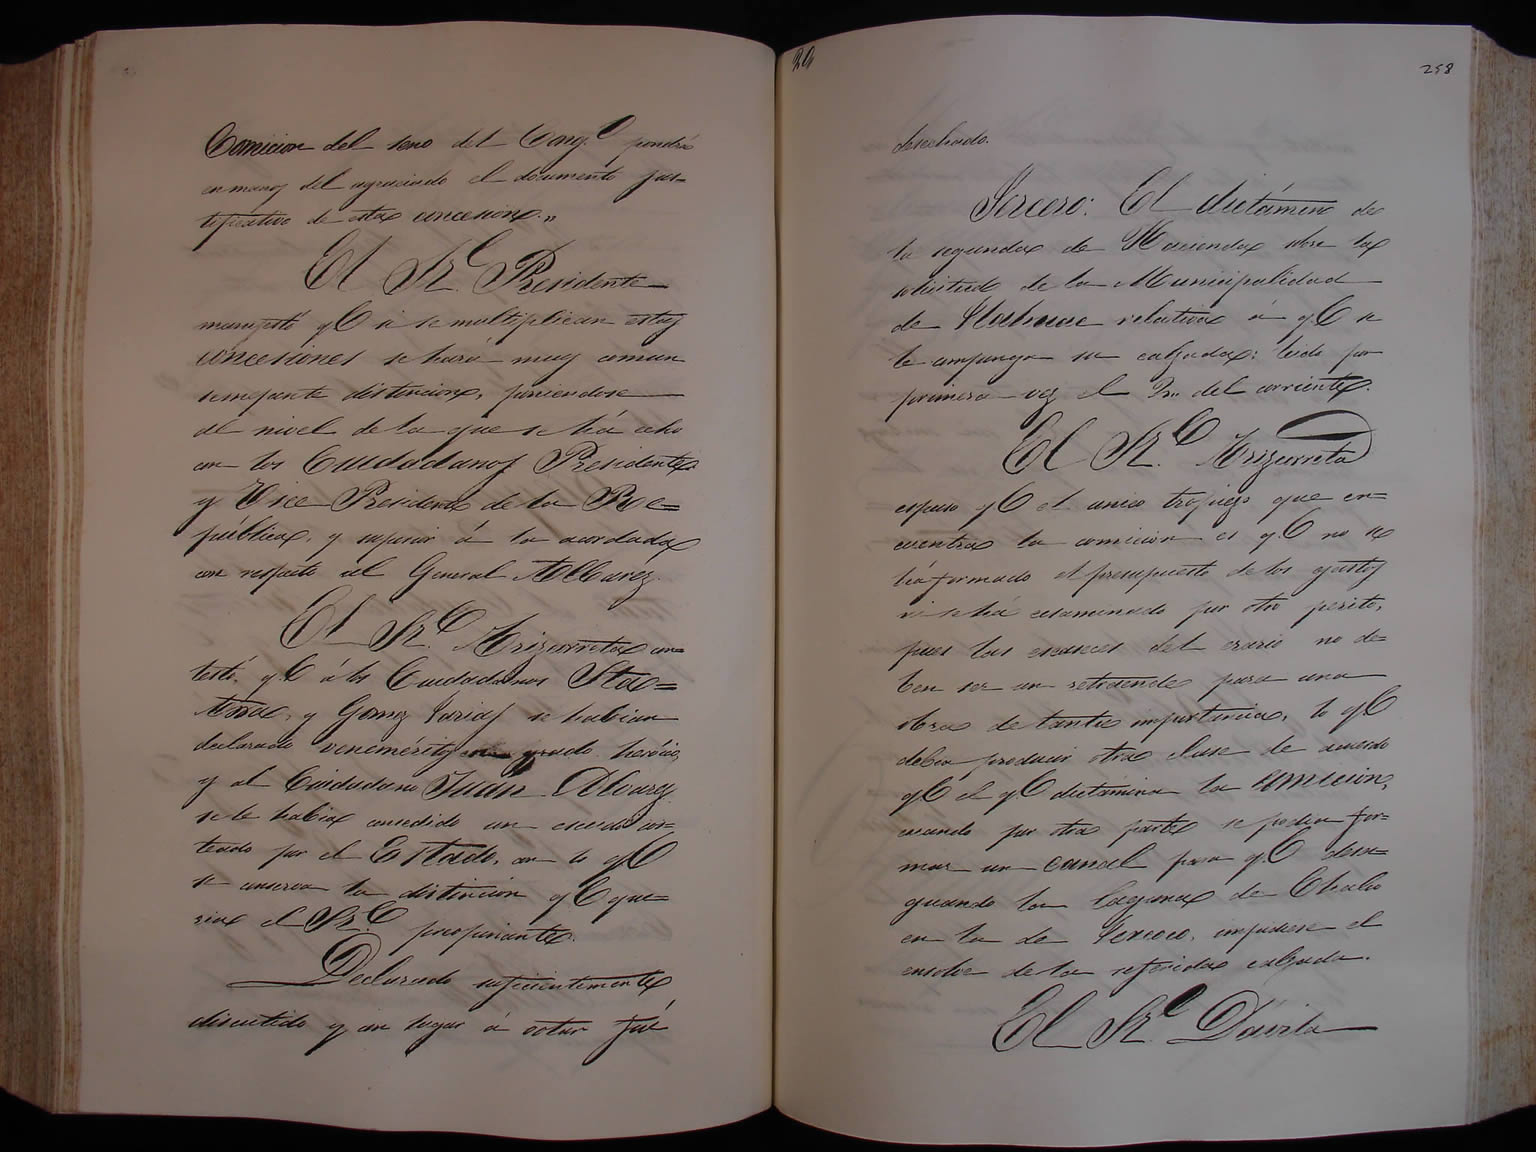 Comicion del seno del Cong.o pondrá
en manos del agraciado el documento jus=
tificativo de esta concesion.,,
El Sr. Presidente
manifestó q.e si se multiplican estas
concesiones se hará muy comun
semejante distincion, poniendose
al nivel de la que se há echo
con los Ciudadanos Presidente
y Vice Presidente de la Re=
pública, y superior á la acordada
con respecto al General Alvarez.
El Sr. Arizcorreta con=
testó, q.e á los Ciudadanos Sta=
Anna, y Gomez Farias se habian
declarado venemérito grado heróico,
y al Ciudadano Juan Alvarez
se le habia consedido un escudo cos=
teado por el Estado, con lo q.e
se conserva la distincion q.e que=
ria el Sr. preopinante.
Declarado suficientemente
discutido y con lugar á votar fué
20
258
desechado.
Tercero: El dictámen de
la segunda de Hacienda sobre la
solisitud de la Municipalidad
de Tlahuac relativa á q.e se
le componga su calzada: leido por
primera vez el 2,, del corriente.
El Sr. Arizcorreta
espuso q.e el unico tropiezo que en=
cuentra la comicion es q.e no se
há formado el presupuesto de los gastos
ni se há ecsaminado por otro perito,
pues las escaseces del erario no de=
ben ser un retraente para una
obra de tanta importancia, lo q.e
debia producir otra clase de acuerdo
q.e el q.e dictámina la comicion,
cuando por otra parte se podia for=
mar un canal para q.e desa=
guando la laguna de Chalco
en la de Texcoco, impidiese el
ensolve de la referida calzada.
El Sr. Dávila